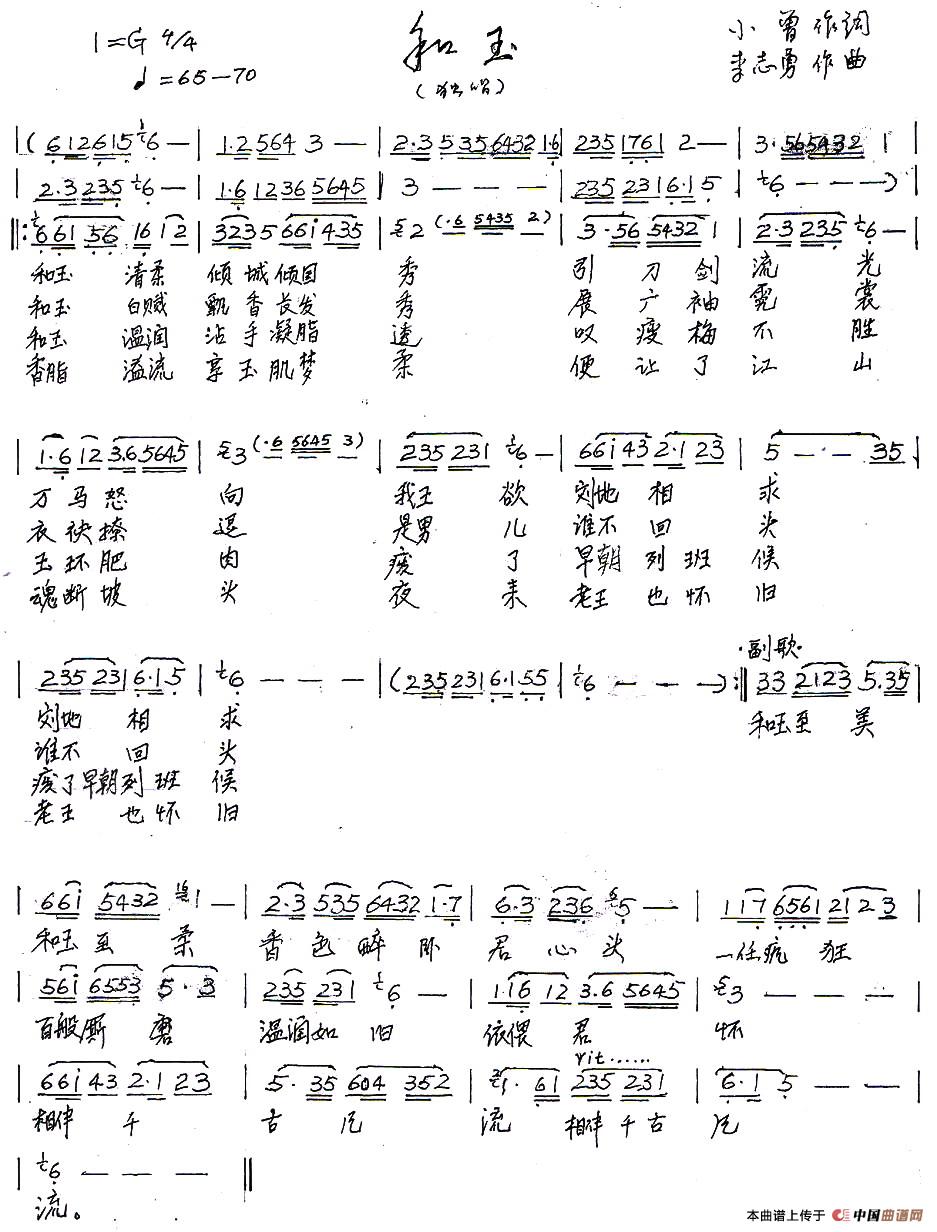 1=G 4/4
♩=65—70
和玉
(独唱)
小曾作词
李志勇作曲
| (6 1 2 6 1 5 6 — | 1·2 5 6 4 3 — | 2·3 5 3 5 6 4 3 2 1·6 | 2 3 5 1 7 6 1 2 — | 3·5 6 5 4 3 2 1 |
2·3 2 3 5 6 — | 1·6 1 2 3 6 5 6 4 5 | 3 — — — | 2 3 5 2 3 1 6·1 5 | 6 — — —) |
‖: 6 6 1 5 6 1 6 1 2 | 3 2 3 5 6 6 i 4 3 5 | 2 (·6 5 4 3 5 2) | 3·5 6 5 4 3 2 1 | 2·3 2 3 5 6 — |
和玉 清柔 倾城倾国 秀 引刀剑流光
和玉 白贼 飘香长发 秀 展广袖霓裳
和玉 温润 沾手凝脂 透 叹瘦梅不胜
香脂 溢流 享玉肌梦 柔 便让了江山
| 1·6 1 2 3·6 5 6 4 5 | 3 (·6 5 6 4 5 3) | 2 3 5 2 3 1 6 — | 6 6 i 4 3 2·1 2 3 | 5 — — 3 5 |
万马怒 向 我王 欲 刻地 相 求
衣袂撩 退 是男 儿 谁不 回 头
玉环肥 肉 废 了 早朝 列班 候
魂断坡 头 夜 来 老王 也怀 旧
| 2 3 5 2 3 1 6·1 5 | 6 — — — | (2 3 5 2 3 1 6·1 5 5 | 6 — — —) :‖
·副歌·
3 3 2 1 2 3 5·3 5 |
刻地 相 求 和玉至 美
谁不 回 头
废了早朝列班 候
老王 也怀 旧
| 6 6 i 5 4 3 2 1 — | 2·3 5 3 5 6 4 3 2 1·7 | 6·3 2 3 6 5 — | 1 1 7 6 5 6 1 2 1 2 3 |
和玉至 柔 香色醉卧 君心头 一任疯 狂
| 5 6 i 6 5 5 3 5·3 | 2 3 5 2 3 1 6 — | 1·1 6 1 2 3·6 5 6 4 5 | 3 — — — |
百般厮 磨 温润如 旧 依偎 君 怀
rit……
| 6 6 i 4 3 2·1 2 3 | 5·3 5 6 0 4 3 5 2 | 1·6 1 2 3 5 2 3 1 | 6·1 5 — — |
相伴 千 古 风 流 相伴千古 风
| 6 — — — ‖
流。
本曲谱上传于 中国曲谱网